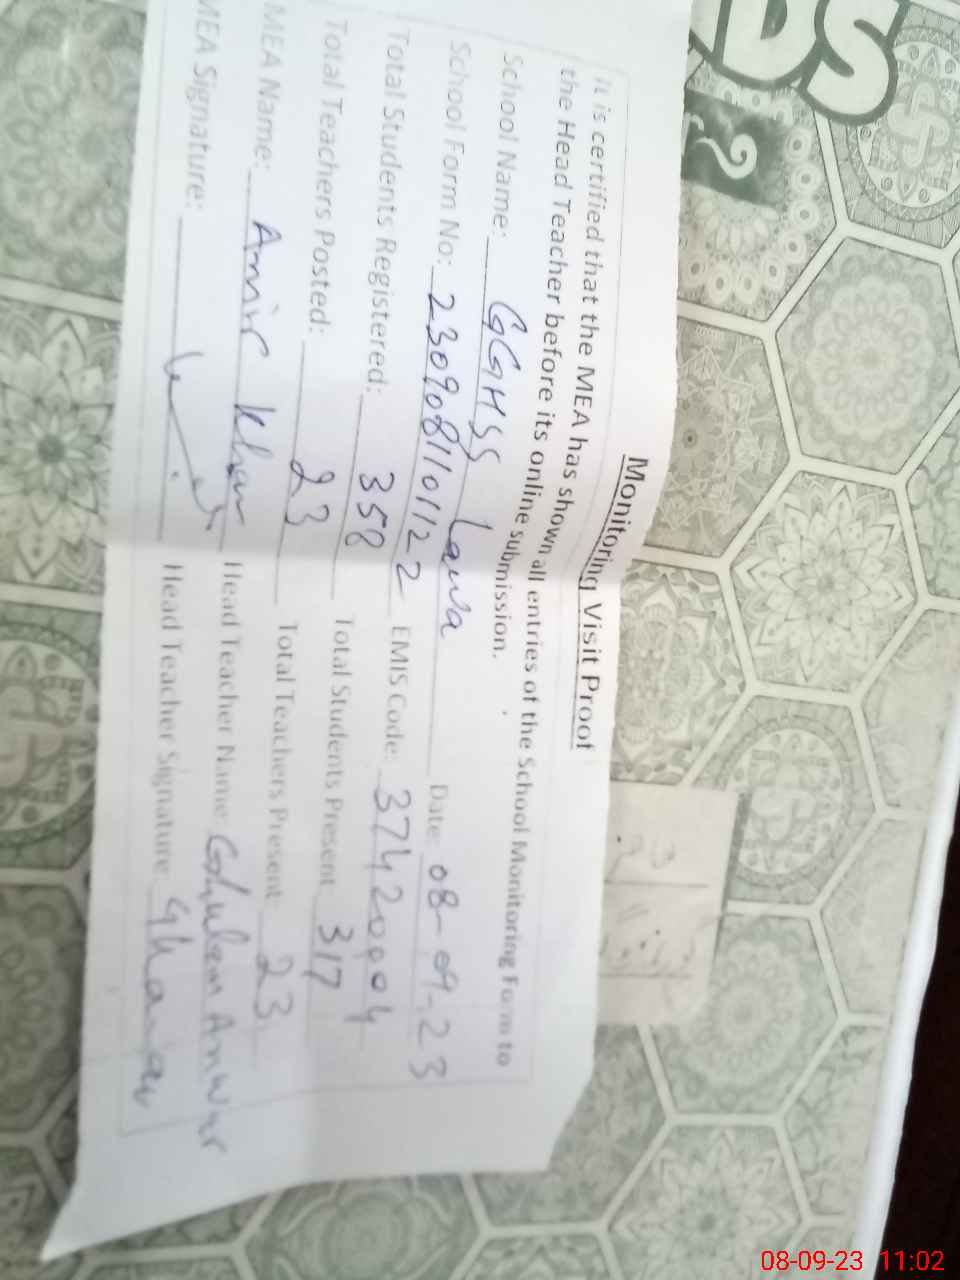 DS
?
Monitoring Visit Proof
It is certified that the MEA has shown all entries of the School Monitoring Form to
the Head Teacher before its online submission.
School Name: GGHSS Lawa Date: 08-09-23
School Form No: 230908110112 2 EMIS Code: 37420004
Total Students Registered: 358 Total Students Present 317
Total Teachers Posted: 23 Total Teachers Present: 23
MEA Name: Amir Khan Head Teacher Name: Ghulam Anwar
MEA Signature: Head Teacher Signature:
08-09-23 11:02